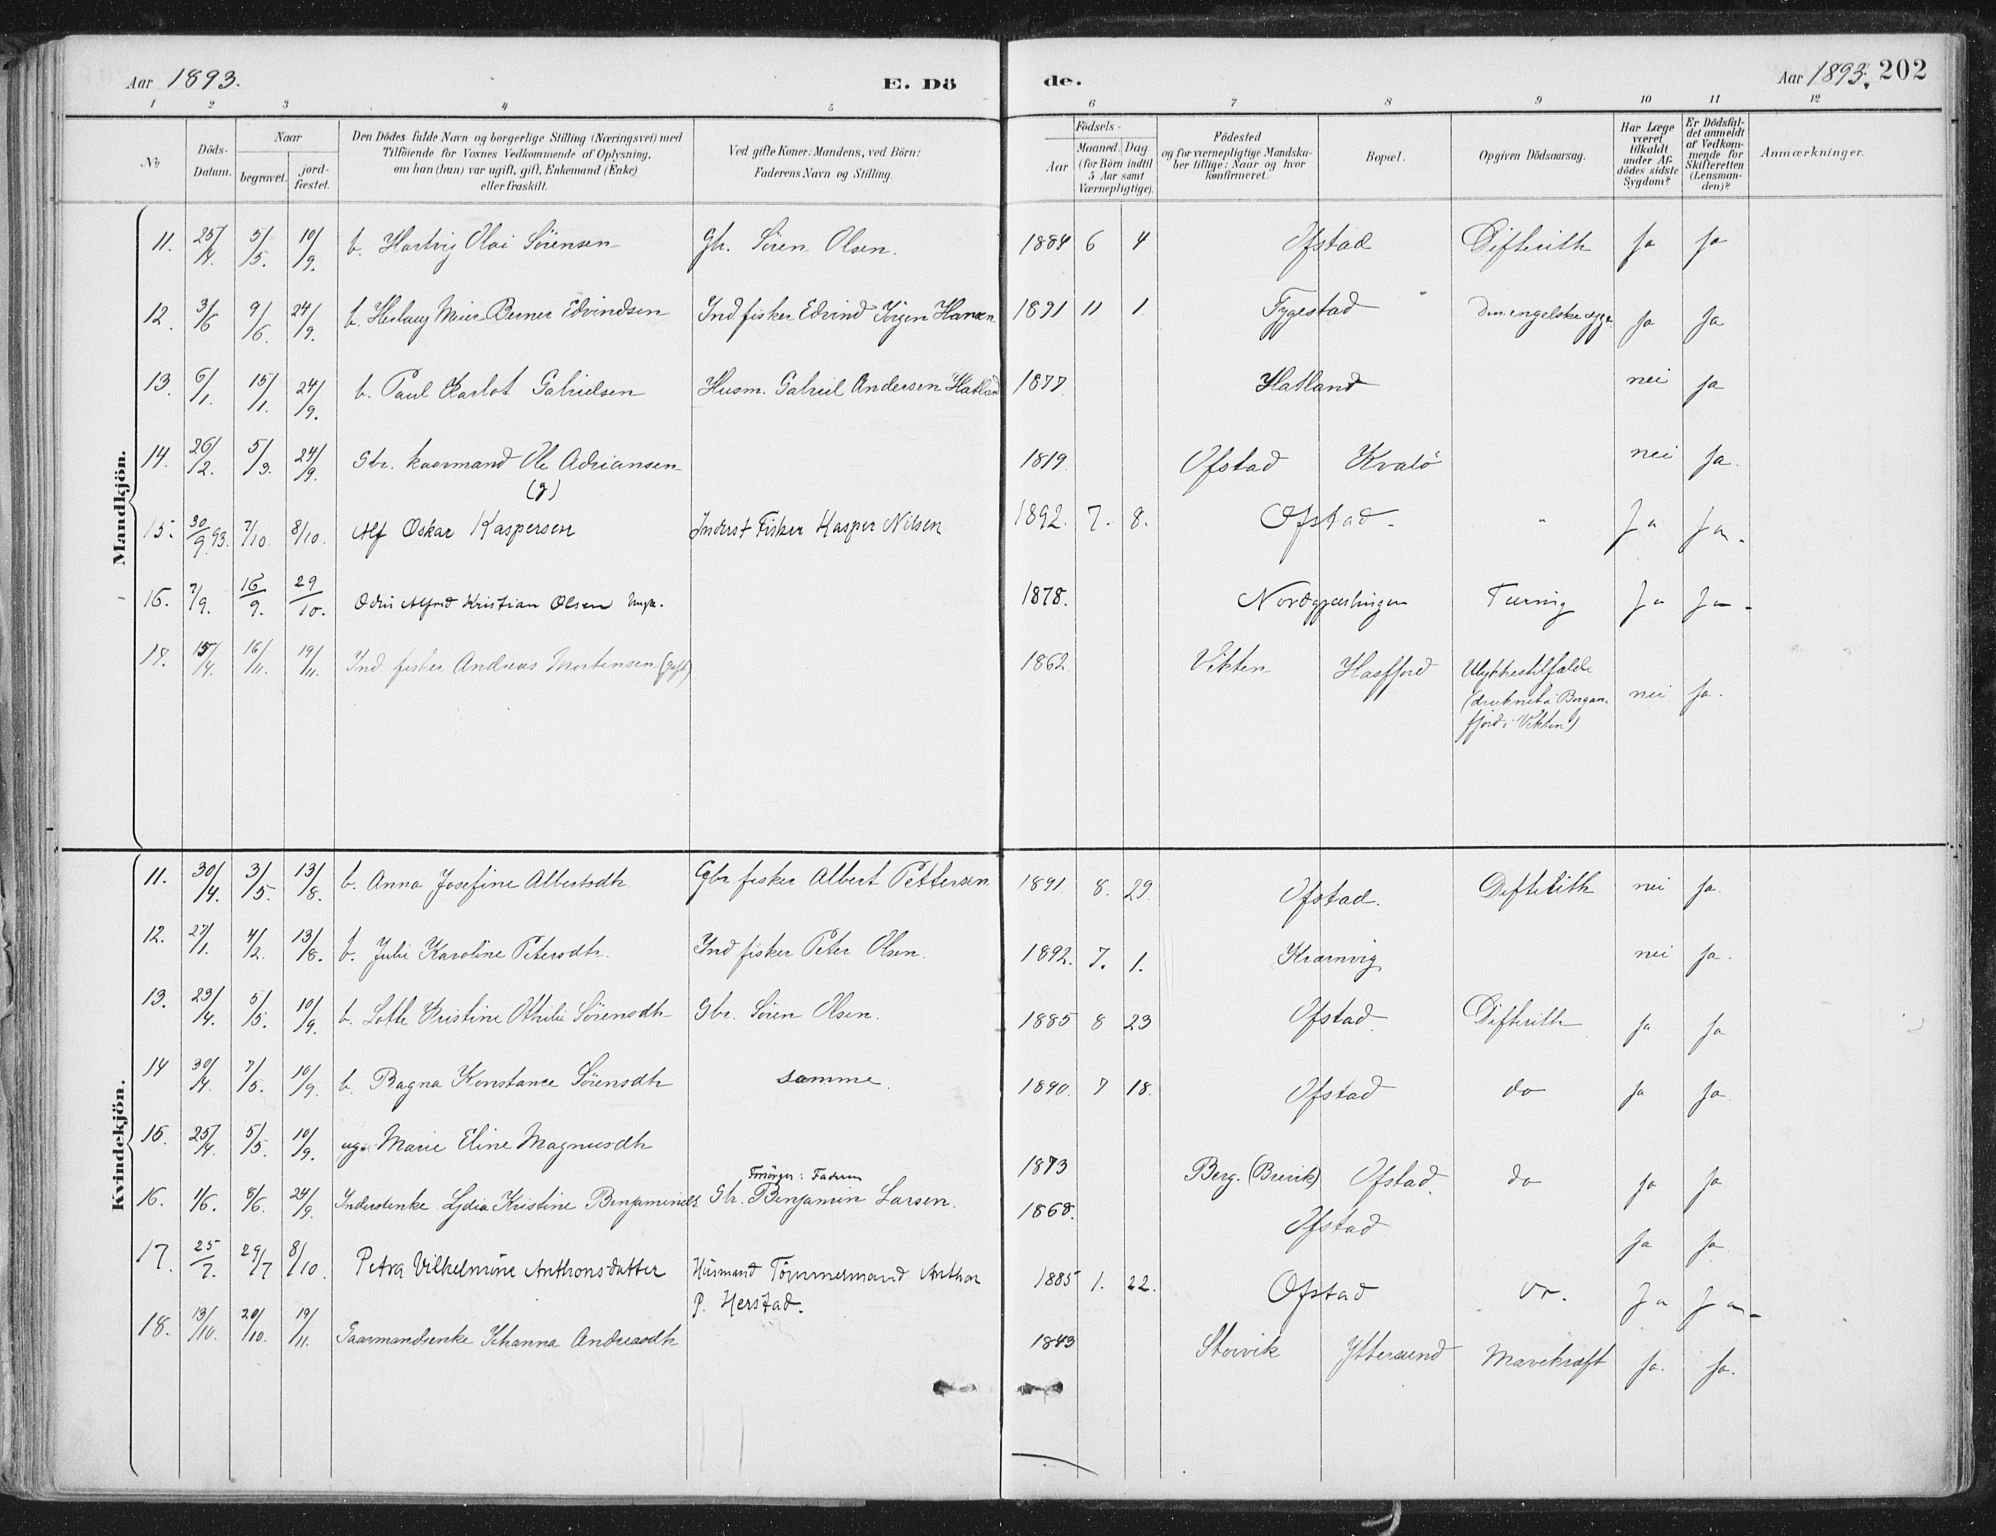 Aar 1893. E. Dö de. Aar 1893. 202
1 2 3 4 5 6 7 8 9 10 11 12
No Döds-Datum. Naar begravet. jordfæstet. Den Dödes fulde Navn og borgerlige Stilling (Næringsvei) med Tilföiende for Voxnes Vedkommende af Oplysning, om han (hun) var ugift, gift, Enkemand (Enke) eller fraskilt. Ved gifte Koner: Mandens, ved Börn: Faderens Navn og Stilling. Födsels- Aar Maaned. Dag. (for Börn indtil 5 Aar samt Værnepligtige). Födested og for værnepligtige Mandskaber tillige: Naar og hvor konfirmeret. Bopæl. Opgiven Dödsaarsag. Har Læge været tilkaldt under Afdödes sidste Sygdom? Er Dödsfaldet anmeldt af Vedkommende for Skifteretten (Lensmanden)? Anmærkninger.
Mandkjön.
11. 25/4 5/5. 10/9. b. Hartvig Olai Sörensen Gbr. Sören Olsen. 1884 6 4 Ofstad Difterith Ja Ja
12. 3/6 9/6. 24/9. b. Berner Edvindsen Ind fisker Edvind Jörgen Hansen 1891 11 1 Fygestad Den engelske syge Ja Ja
13. 6/1. 15/1. 24/9. b. Paul Karlot Gabrielsen Husm. Gabriel Andersen Hatland 1877. Hatland nei Ja
14. 26/2. 5/3. 24/9. Gbr. Ole Adriansen (g) 1819. Ofstad Kvalö nei Ja.
15. 30/9.93. 7/10. 8/10. Alf Oskar Kaspersen Inderst Fisker Kasper Nilsen 1892. 7. 8. Ofstad. " Ja Ja.
16. 7/9. 16/9. 29/10. Odin Alfred Kristian Olsen Ungk. 1878. Tæring Ja Ja
17. 15/4. 16/11. 19/11. Ind. fisker Andreas Mortensen (gift) 1862. Vikten Hasfjord Ulykkestilfælde (druknet i Borganfjord i Vikten) nei Ja.
Kvindekjön.
11. 30/4. 3/5. 13/8. b. Anna Josefine Albertsdtr. Gbr fisker Albert Pettersen 1891. 8. 29. Ofstad. Difterith nei Ja.
12. 27/1. 4/2. 13/8. b. Julie Karoline Petersdtr. Ind fisker Peter Olsen. 1892. 7. 1. Kramvig nei Ja.
13. 23/4. 5/5. 10/9. b. Lotte Kristine Othilie Sörensdtr Gbr. Sören Olsen. 1885 8 23 Ofstad. Difterith Ja Ja
14 30/4. 7/5. 10/9. b. Ragna Konstance Sörensdtr samme. 1890. 7 18. Ofstad do Ja Ja.
15. 25/4. 5/5. 10/9. ug. Marie Eline Magnusdtr 1873 Berg. (Brevik) Ofstad. do Ja Ja
Forsörger: Faderen
16. 1/6. 8/6. 24/9. Inderstenke Lydia Kristine Benjaminsdtr Gbr. Benjamin Larsen. 1868. Ofstad Ja Ja.
17. 25/7. 29/7 8/10. Petra Vilhelmine Anthonsdatter Husmand Tömmermand Anthon P. Herstad. 1885 1. 22. Ofstad Ja Ja
18. 13/10. 20/10. 19/11. Gaarmandsenke Johanna Andreasdtr 1843 Storvik Yttersund Mavekræft Ja. Ja.